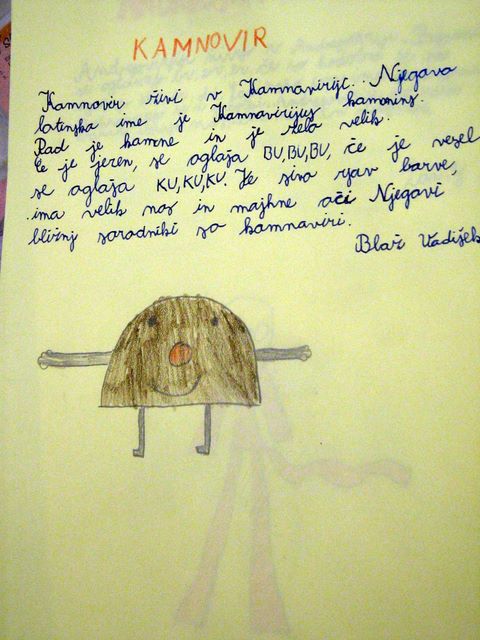 KAMNOVIR
Kamnovir živi v Kamnavirijc. Njegava
latinska ime je Kamnavirijus kamonins.
Rad je kamne in je zelo velik.
Če je jezen, se oglaša BU, BU, BU, če je vesel
se oglaša KU, KU, KU. Je siva rjav barve,
ima velik nos in majhne oči Njegavi
bližnj sorodniki so kamnaviri.
Blaž